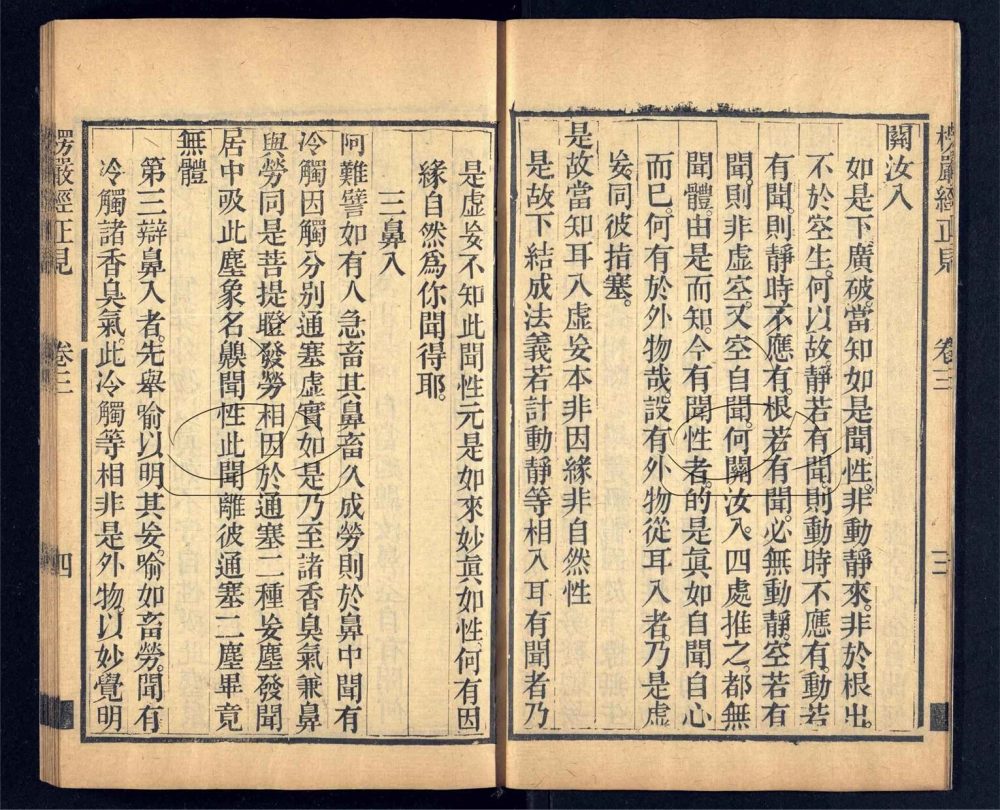 楞嚴經正見 卷三 三
關汝入
如是下廣破。當知如是聞性。非動靜來。非於根出。
不於空生。何以故靜若有聞則動時不應有。動若
有聞。則靜時不應有。根若有聞。必無動靜。空若有
聞。則非虛空。又空自聞。何關汝入。四處推之。都無
聞體。由是而知。今有聞性者。的是眞如自聞自心
而已。何有於外物哉。設有外物從耳入者。乃是虛
妄。同彼指塞。
是故當知耳入虛妄本非因緣非自然性
是故下結成法義若計動靜等相入耳有聞者乃
是虛妄不知此聞性元是如來妙眞如性。何有因
緣自然爲你聞得耶。
三鼻入
阿難譬如有人急畜其鼻畜久成勞則於鼻中聞有
冷觸因觸分别通塞虛實如是乃至諸香臭氣兼鼻
與勞同是菩提瞪發勞相因於通塞二種妄塵發聞
居中吸此塵象名齅聞性此聞離彼通塞二塵畢竟
無體
第三辯鼻入者。先舉喻以明其妄。喻如畜勞。聞有
冷觸諸香臭氣。此冷觸等相非是外物。以妙覺明
楞嚴經正見 卷三 四